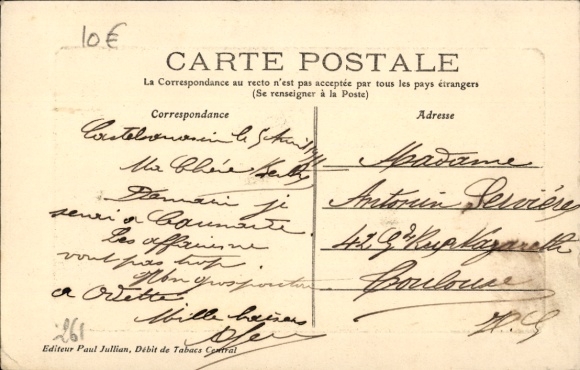 10€
CARTE POSTALE
La Correspondance au recto n'est pas acceptée par tous les pays étrangers
(Se renseigner à la Poste)
Correspondance
Adresse
Castelsarrasin le 5 Avril
Ma Chère
Demain je
serai a Caumont.
Les affaires ne
vont pas trop.
Mon gros
a Odette
Mille baisers
Madame
Antonin
42 Gde Rue Nazareth
Toulouse
261
Editeur Paul Jullian, Débit de Tabacs Central